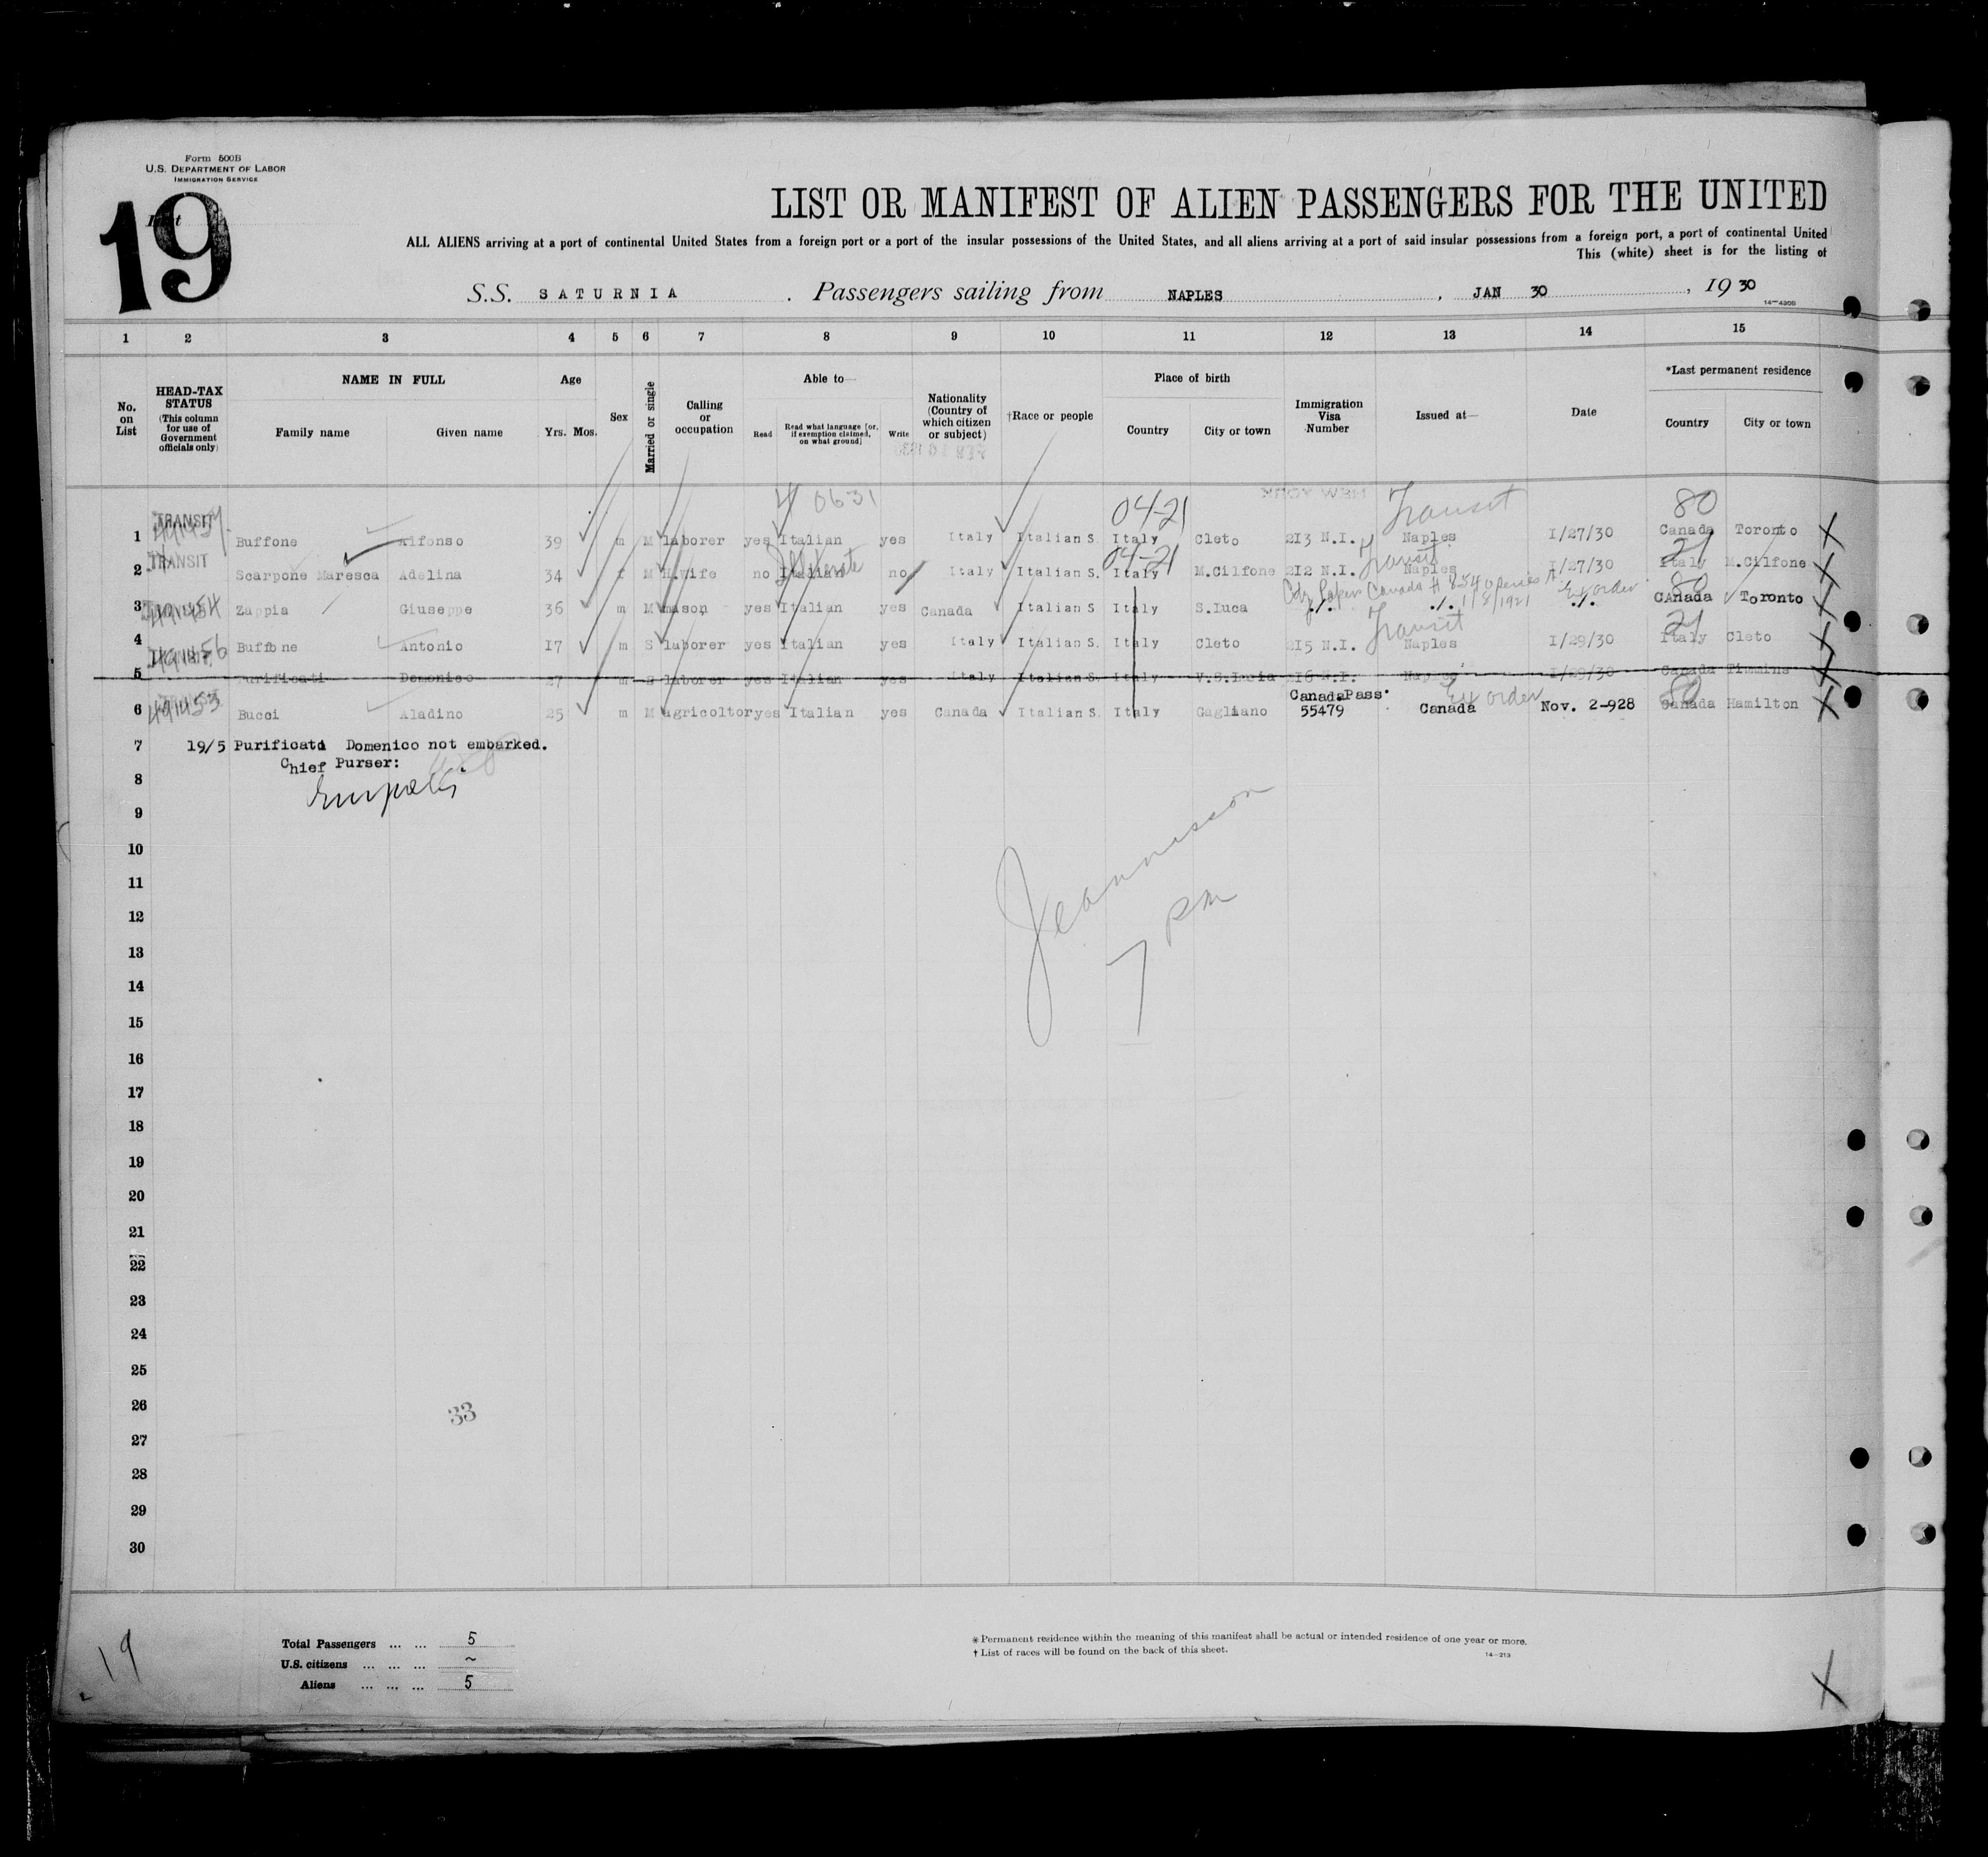 Form 500B
U.S. DEPARTMENT OF LABOR
IMMIGRATION SERVICE
19
LIST OR MANIFEST OF ALIEN PASSENGERS FOR THE UNITED
ALL ALIENS arriving at a port of continental United States from a foreign port or a port of the insular possessions of the United States, and all aliens arriving at a port of said insular possessions from a foreign port, a port of continental United
This (white) sheet is for the listing of
S.S. SATURNIA . Passengers sailing from NAPLES , JAN 30 , 19 30
1 2 3 4 5 6 7 8 9 10 11 12 13 14 15
No. on List HEAD-TAX STATUS (This column for use of Government officials only) NAME IN FULL Family name Given name Age Yrs. Mos. Sex Married or single Calling or occupation Able to— Read Read what language [or, if exemption claimed, on what ground] Write Nationality (Country of which citizen or subject) †Race or people Place of birth Country City or town Immigration Visa Number Issued at— Date *Last permanent residence Country City or town
4 0631 04-21 Transit 80
1 TRANSIT Buffone Alfonso 39 m M laborer yes Italian yes Italy Italian S. Italy Cleto 213 N.I. Naples 1/27/30 Canada Toronto
Illiterate 04-21 Transit 21
2 TRANSIT Scarpone Maresca Adelina 34 f M H.wife no Italian no Italy Italian S. Italy M.Cilfone 212 N.I. Naples 1/27/30 Italy M.Cilfone
Canada 1/8/1921 Ex order 80
3 491454 Zappia Giuseppe 36 m M mason yes Italian yes Canada Italian S Italy S.Luca ./. ./. ./. CAnada Toronto
Transit 21
4 491456 Buffone Antonio 17 m S laborer yes Italian yes Italy Italian S. Italy Cleto 215 N.I. Naples 1/29/30 Italy Cleto
5 Purificati Domenico 27 m S laborer yes Italian yes Italy Italian S. Italy V.S.Lucia 216 N.I. Naples 1/29/30 Canada Timmins
Ex order 80
6 491453 Bucci Aladino 25 m M agricoltor yes Italian yes Canada Italian S. Italy Gagliano Canada Pass. 55479 Canada Nov. 2-928 Canada Hamilton
7 19/5 Purificati Domenico not embarked.
Chief Purser:
8
9
10
11
12
13
14
15
16
17
18
19
20
21
22
23
24
25
26
27
28
29
30
Jeannisson
7 PM
33
Total Passengers ... ... 5
U.S. citizens ... ... ... ~
Aliens ... ... ... 5
* Permanent residence within the meaning of this manifest shall be actual or intended residence of one year or more.
† List of races will be found on the back of this sheet.
14—213
19
X